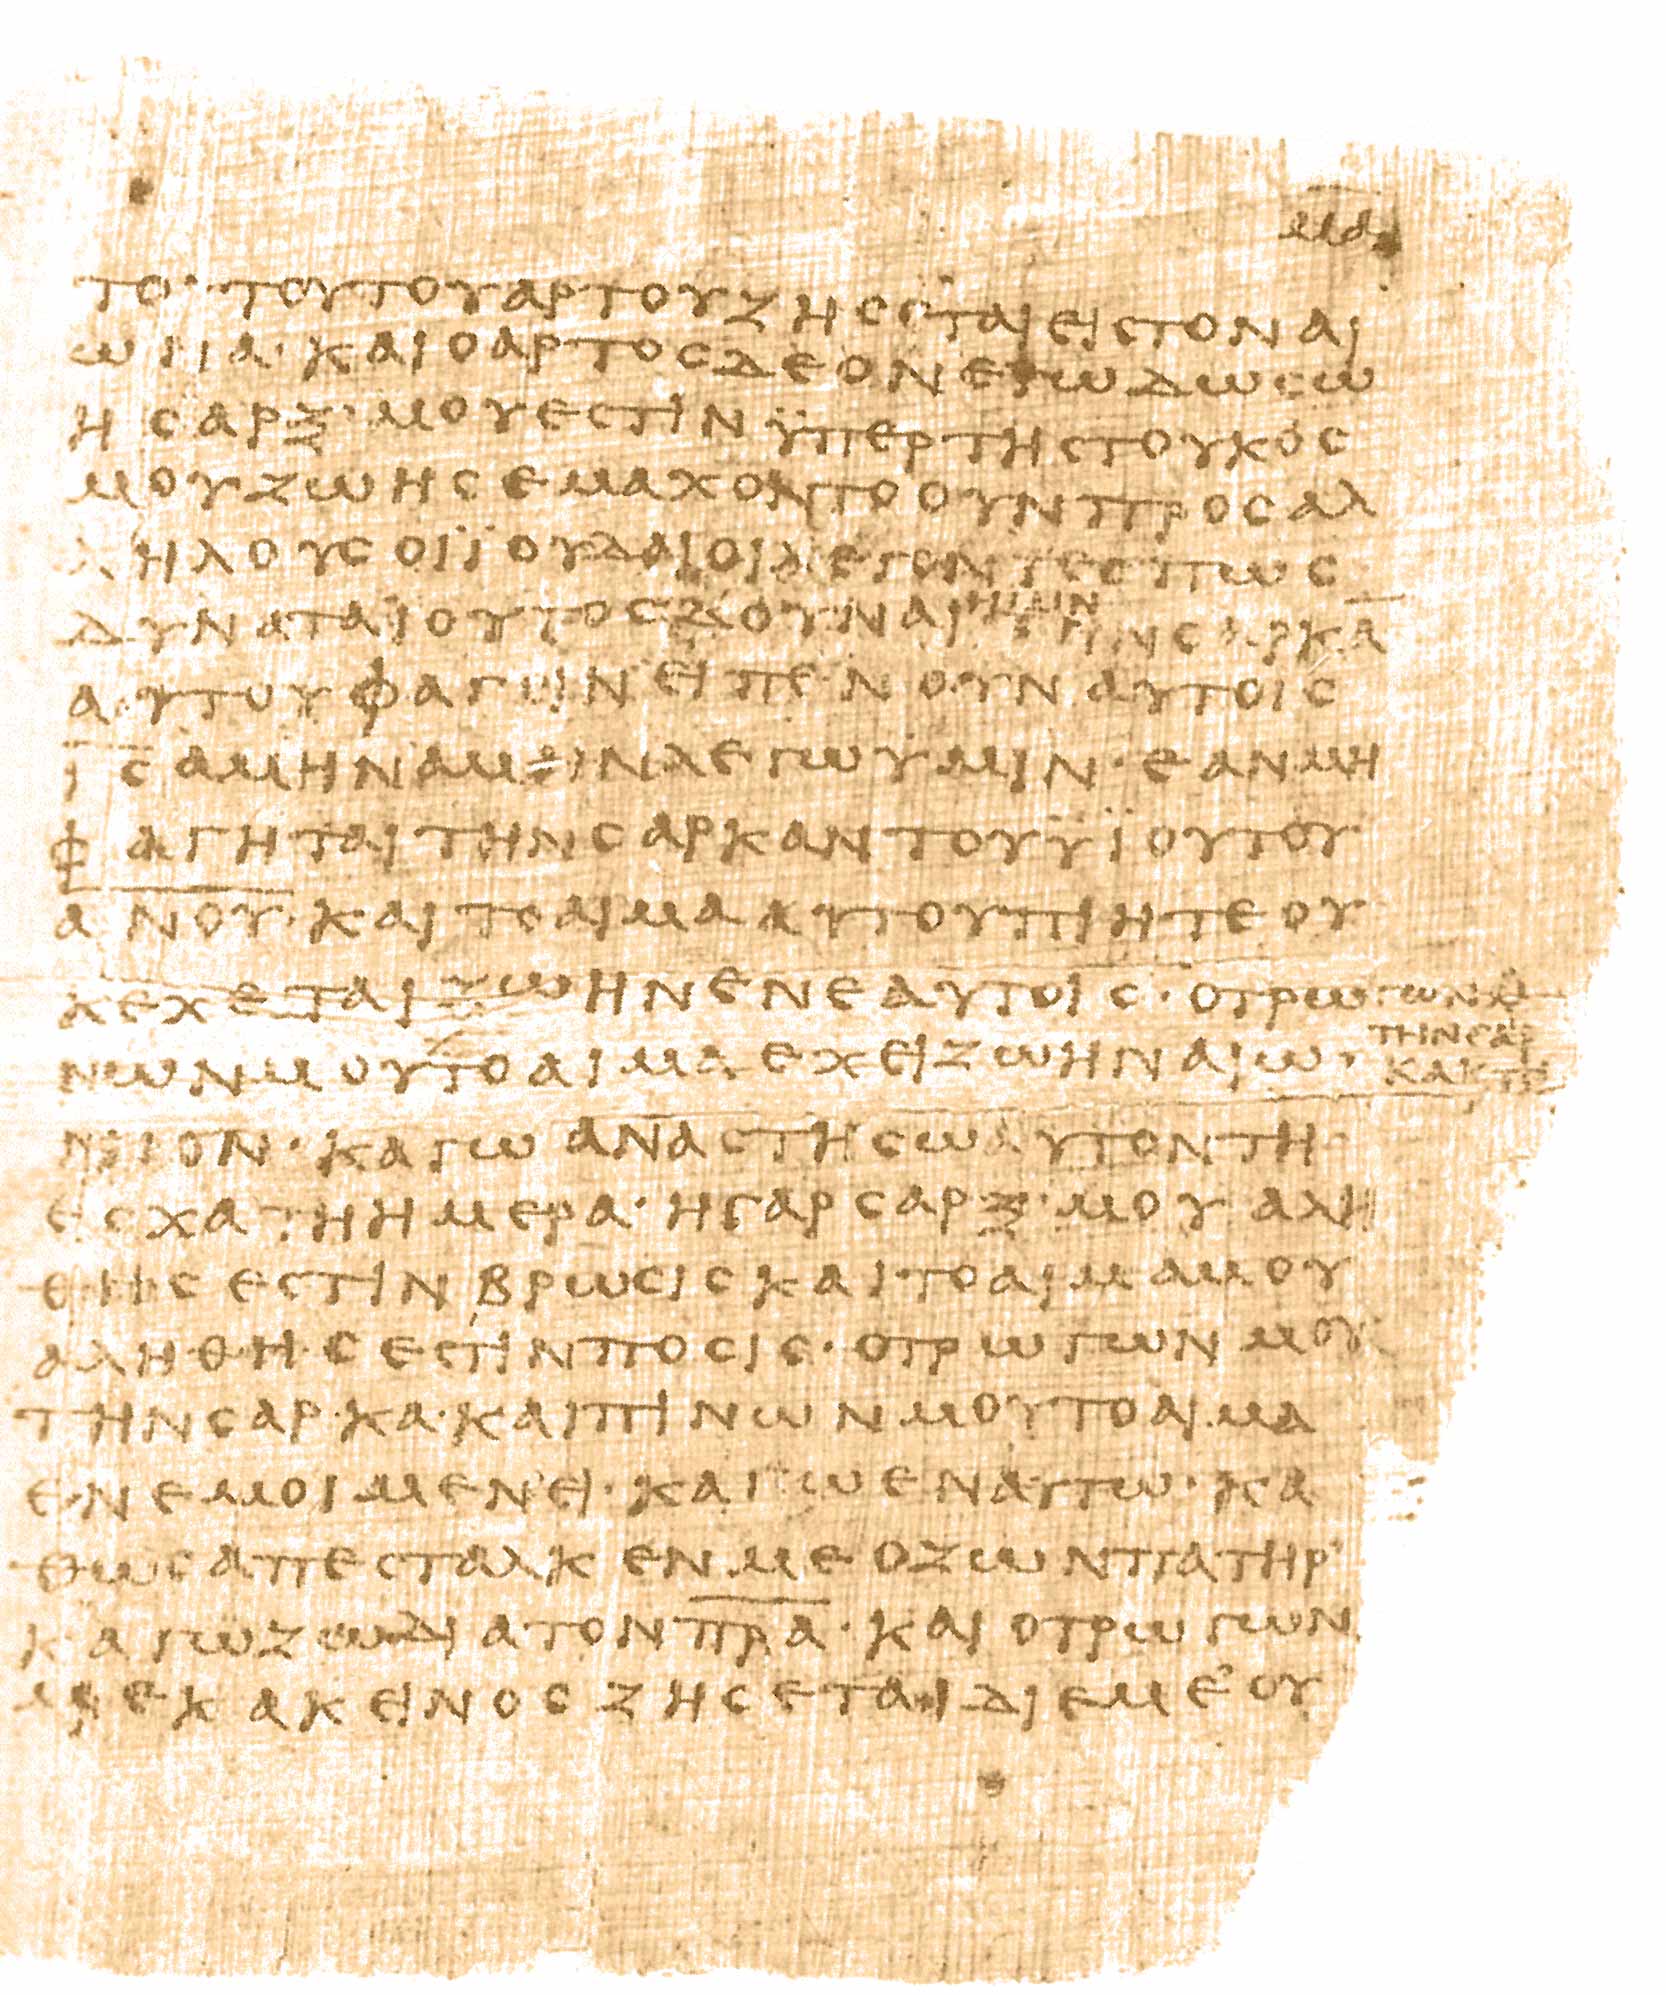 μδ
το· τουτου αρτου ζησεται εις τον αι
ωνα· και ο αρτος δε ον εγω δωσω
η σαρξ· μου εστιν ϋπερ της του κοσ
μου ζωης εμαχοντο ουν προς αλ
ληλους οι ϊουδαιοι λεγοντες πως
δυναται ουτος δουναι ημιν την σαρκα̅
αυτου φαγειν ειπεν ουν αυτοις
ι̅ς̅ αμην αμην λεγω υμιν· εαν μη
φαγηται την σαρκαν του ϋϊου του
α̅ν̅ο̅υ̅· και το αιμα αυτου πιητε ου
κ εχεται ζωην εν εαυτοις· ο τρωγων
την σαρ
κα κ πι
νων μου το αιμα εχει ζωην αιω
νιον· καγω αναστησω αυτον τη
εσχατη ημερα· η γαρ σαρξ· μου αλη
θης εστιν βρωσις και το αιμα μου
αληθης εστιν ποσις· ο τρωγων μου
την σαρκα· και πινων μου το αιμα
εν εμοι μενει· καγω εν αυτω· κα
θως απεσταλκεν με ο ζων πατηρ
καγω ζω δια τον π̅ρ̅α̅· και ο τρωγων
με κακεινος ζησεται δι εμε ου